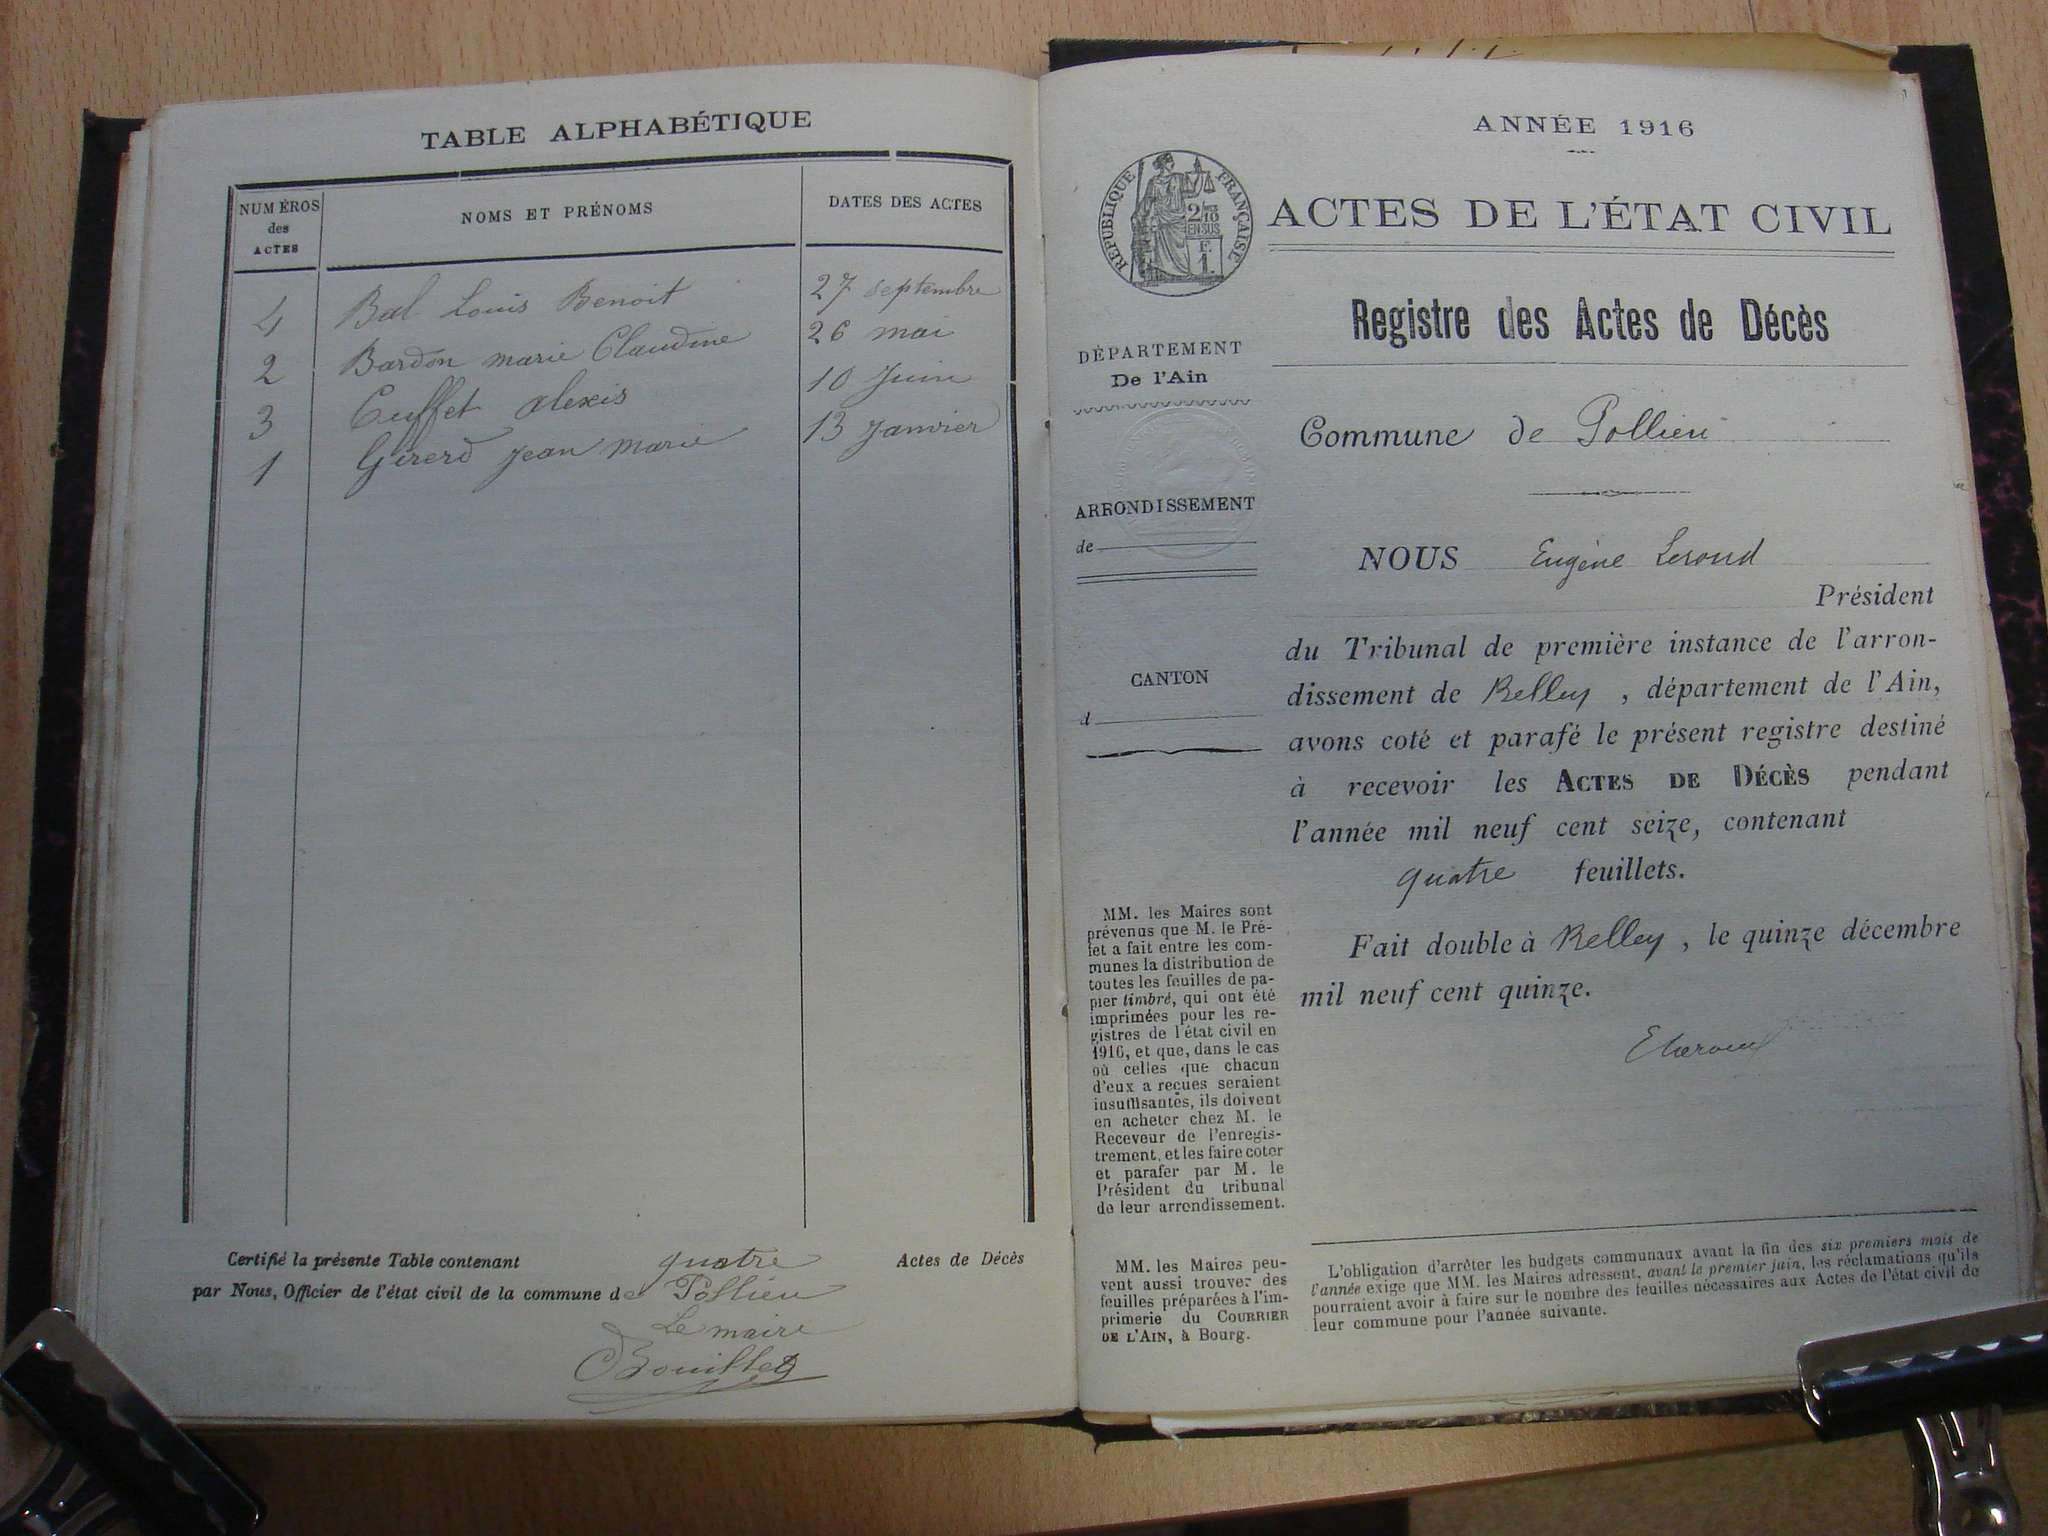 TABLE ALPHABÉTIQUE
NUMÉROS
des
ACTES
NOMS ET PRÉNOMS
DATES DES ACTES
4 Bal Louis Benoit 27 septembre
2 Bardon marie Claudine 26 mai
3 Cuffet alexis 10 Juin
1 Girerd Jean marie 13 Janvier
Certifié la présente Table contenant quatre Actes de Décès
par Nous, Officier de l'état civil de la commune de Pollieu
Le maire
Bouillet
ANNÉE 1916
RÉPUBLIQUE FRANÇAISE
2/10
EN SUS
F.
1.
ACTES DE L'ÉTAT CIVIL
Registre des Actes de Décès
DÉPARTEMENT
De l'Ain
ARRONDISSEMENT
de
CANTON
d
Commune de Pollieu
NOUS Eugène
Président
du Tribunal de première instance de l'arron-
dissement de Belley, département de l'Ain,
avons coté et parafé le présent registre destiné
à recevoir les ACTES DE DÉCÈS pendant
l'année mil neuf cent seize, contenant
quatre feuillets.
Fait double à Belley, le quinze décembre
mil neuf cent quinze.
MM. les Maires sont
prévenus que M. le Pré-
fet a fait entre les com-
munes la distribution de
toutes les feuilles de pa-
pier timbré, qui ont été
imprimées pour les re-
gistres de l'état civil en
1916, et que, dans le cas
où celles que chacun
d'eux a reçues seraient
insuffisantes, ils doivent
en acheter chez M. le
Receveur de l'enregis-
trement, et les faire coter
et parafer par M. le
Président du tribunal
de leur arrondissement.
MM. les Maires peu-
vent aussi trouver des
feuilles préparées à l'im-
primerie du COURRIER
DE L'AIN, à Bourg.
L'obligation d'arrêter les budgets communaux avant la fin des six premiers mois de
l'année exige que MM. les Maires adressent, avant le premier juin, les réclamations qu'ils
pourraient avoir à faire sur le nombre des feuilles nécessaires aux Actes de l'état civil de
leur commune pour l'année suivante.